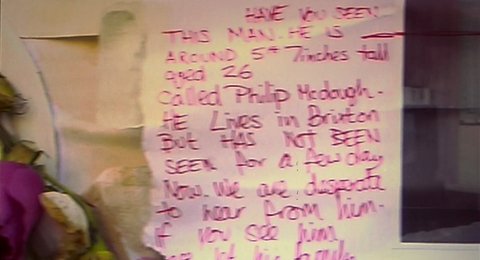 HAVE YOU SEEN
THIS MAN. HE IS
AROUND 5ft 7inches tall
aged 26
Called Philip Mcdough.
HE Lives in Brixton
BUT HAS NOT BEEN
SEEN for a few day
Now. We are desparate
to hear from him.
if you see him
let his family